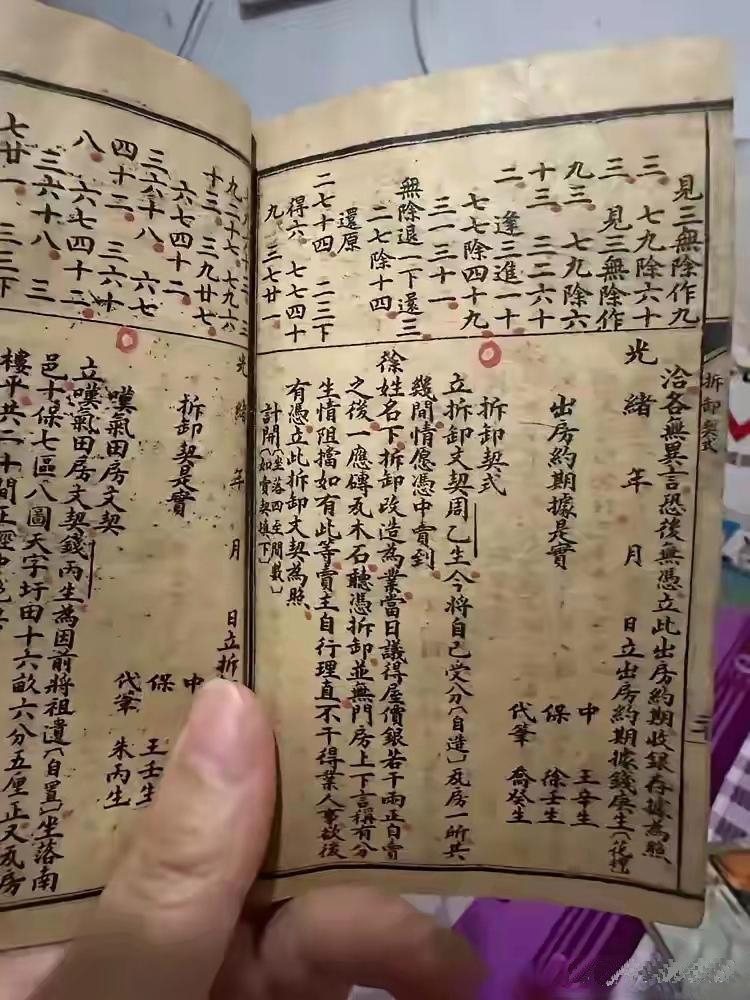 拆卸契式
見三無除作九
三 七九除六十
三 見三無除作
九三 七九除六
十三 三二六十
二 逢三進一十
七七除四十九
三一三十一
無除退一下還三
二七除十四
還原
二七十四 二三下
得六 七七四十
九 三七廿一
洽各無異言恐後無憑立此出房約期收銀存據為照
光緒 年 月 日立出房約期據錢庚生(花押)
中 王辛生
保 徐壬生
代筆 喬癸生
出房約期據是實
拆卸契式
立拆卸文契周乙生今將自己受分(自造)瓦房一所共
幾間情愿憑中賣到
徐姓名下拆卸改造為業當日議得屋價銀若干兩正自賣
之後一應磚瓦木石聽憑拆卸並無門房上下言稱有分
生情阻擋如有此等賣主自行理直不干得業人事欲後
有憑立此拆卸文契為照
計開(坐落四至間數)(如賣契填下)
九二十七 七九六
十三 三九廿七
六七四十二
三六十八 六七
四十二 三六十
八 六七四十二
三六十八 三
七廿一 三三下
光緒 年 月 日立拆
中
保 王壬生
代筆 朱丙生
拆卸契是實
嘆氣田房文契
立嘆氣田房文契錢丙生為因前將祖遺(自置)坐落南
邑十保七區八圖天字圩田十六畝六分五厘正又瓦房
樓平共二十間正